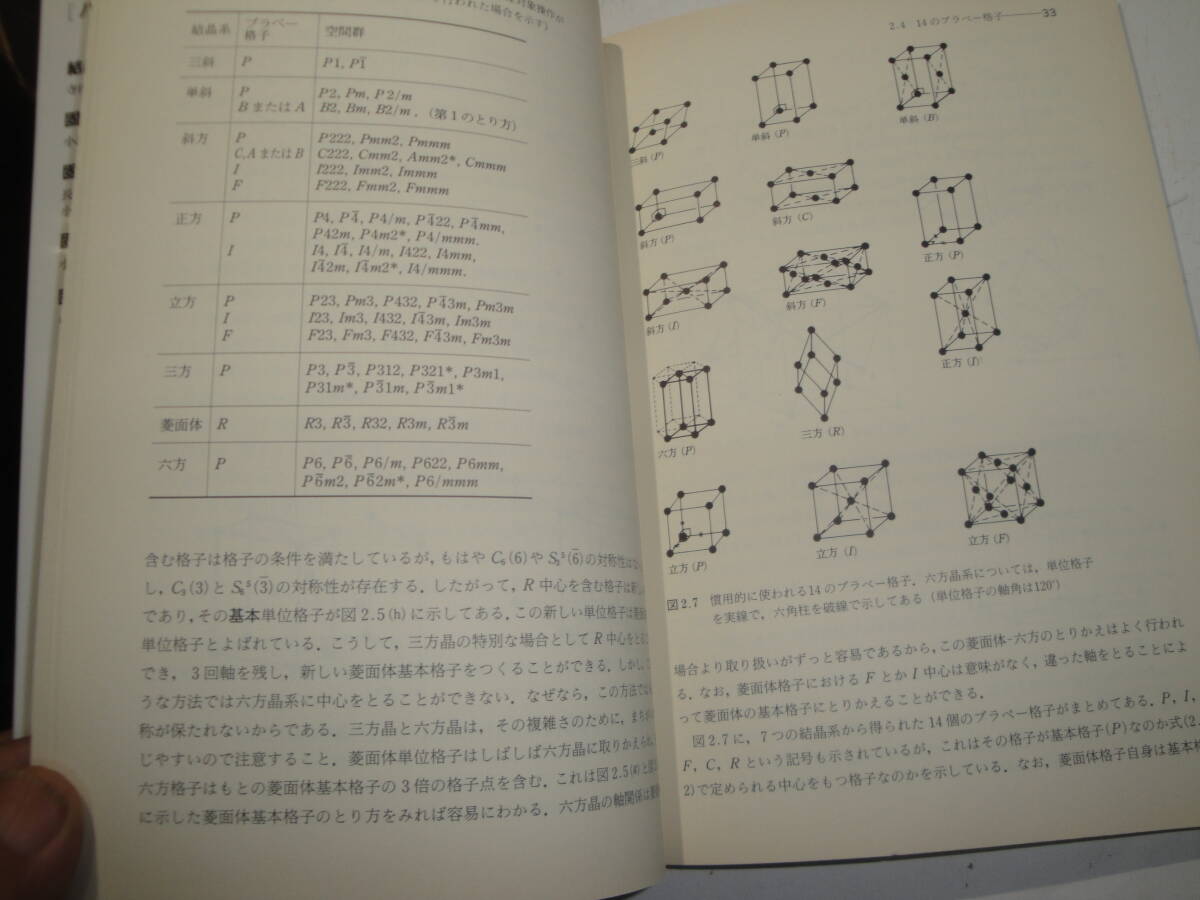 対象操作が
行われた場合を示す)
結晶系 ブラベー格子 空間群
三斜 P P1, P1̄
単斜 P P2, Pm, P2/m
BまたはA B2, Bm, B2/m. (第1のとり方)
斜方 P P222, Pmm2, Pmmm
C,AまたはB C222, Cmm2, Amm2*, Cmmm
I I222, Imm2, Immm
F F222, Fmm2, Fmmm
正方 P P4, P4̄, P4/m, P4̄22, P4̄mm,
P42m, P4m2*, P4/mmm.
I I4, I4̄, I4/m, I422, I4mm,
I4̄2m, I4̄m2*, I4/mmm.
立方 P P23, Pm3, P432, P4̄3m, Pm3m
I I23, Im3, I432, I4̄3m, Im3m
F F23, Fm3, F432, F4̄3m, Fm3m
三方 P P3, P3̄, P312, P321*, P3m1,
P31m*, P3̄1m, P3̄m1*
菱面体 R R3, R3̄, R32, R3m, R3̄m
六方 P P6, P6̄, P6/m, P622, P6mm,
P6̄m2, P6̄2m*, P6/mmm
含む格子は格子の条件を満たしているが,もはやC₆(6)やS₃⁵(6̄)の対称性は
し,C₃(3)とS₆⁵(3̄)の対称性が存在する.したがって,R中心を含む格子は新し
であり,その基本単位格子が図2.5(h)に示してある.この新しい単位格子は
単位格子とよばれている.こうして,三方晶の特別な場合としてR中心を
でき,3回軸を残し,新しい菱面体基本格子をつくることができる.しかし,
うな方法では六方晶系に中心をとることができない.なぜなら,この方法では
称が保たれないからである.三方晶と六方晶は,その複雑さのために,まちがい
じやすいので注意すること.菱面体単位格子はしばしば六方晶に取りかえられ,
六方格子はもとの菱面体基本格子の3倍の格子点を含む.これは図2.5(g)と
に示した菱面体基本格子のとり方をみれば容易にわかる.六方晶の軸関係は
2.4 14のブラベー格子 33
三斜(P)
単斜(P)
単斜(B)
斜方(P)
斜方(C)
正方(P)
斜方(I)
斜方(F)
正方(I)
六方(P)
三方(R)
立方(P)
立方(I)
立方(F)
図2.7 慣用的に使われる14のブラベー格子.六方晶系については,単位格子
を実線で,六角柱を破線で示してある(単位格子の軸角は120°)
場合より取り扱いがずっと容易であるから,この菱面体-六方のとりかえはよく行われ
る.なお,菱面体格子におけるFとかI中心は意味がなく,違った軸をとることによ
って菱面体の基本格子にとりかえることができる.
図2.7に,7つの結晶系から得られた14個のブラベー格子がまとめてある.P,I,
F,C,Rという記号も示されているが,これはその格子が基本格子(P)なのか式(2.
2)で定められる中心をもつ格子なのかを示している.なお,菱面体格子自身は基本格